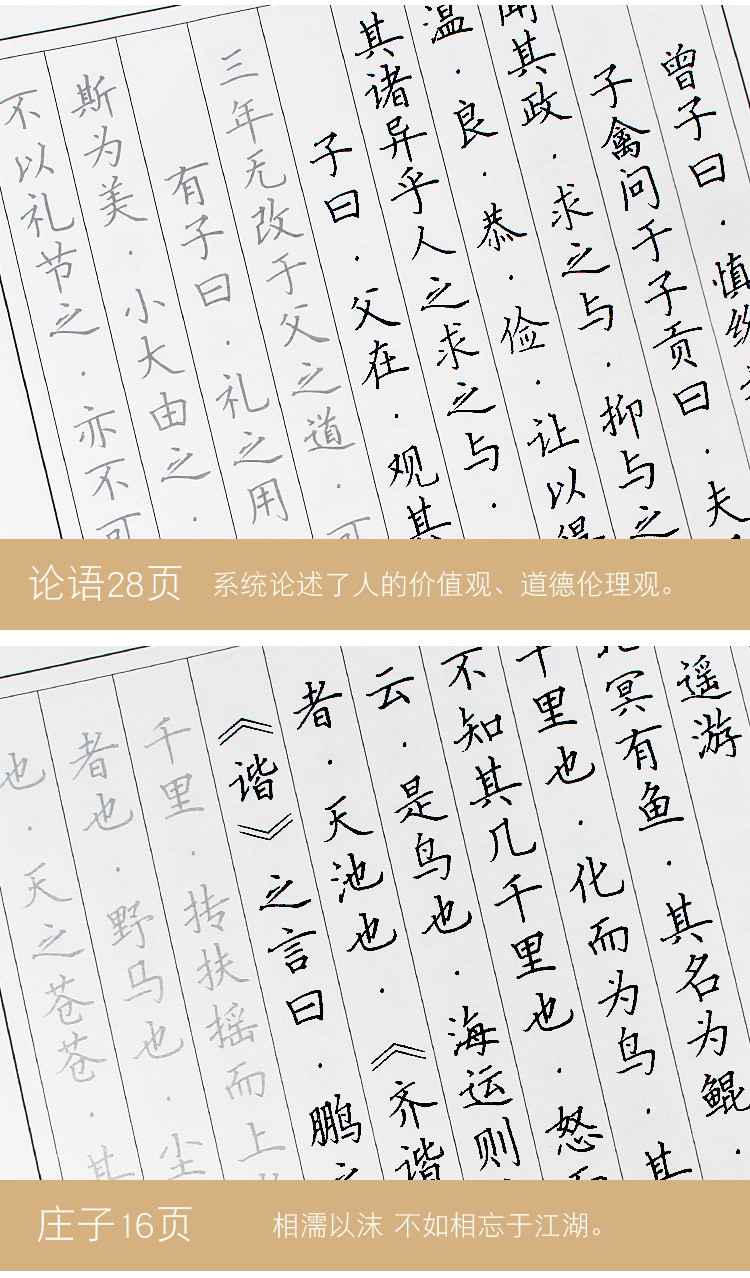 曾子曰·慎终
子禽问于子贡曰·夫
闻其政·求之与·抑与之
温·良·恭·俭·让以得
其诸异乎人之求之与·
子曰·父在·观其
三年无改于父之道·可
有子曰·礼之用
斯为美·小大由之·
不以礼节之·亦不可
论语28页
系统论述了人的价值观、道德伦理观。
遥游
冥有鱼·其名为鲲·
千里也·化而为鸟·其
不知其几千里也·怒
云·是鸟也·海运则
者·天池也·《齐谐
《谐》之言曰·鹏之
千里·抟扶摇而上
者也·野马也·尘
也·天之苍苍·其
庄子16页
相濡以沫 不如相忘于江湖。